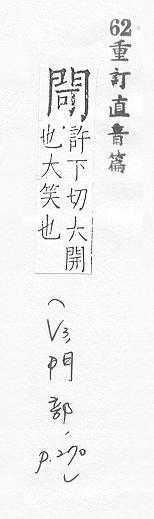 62重訂直音篇
閜
許下切大開
也大笑也
(V3,門部,
p.270)